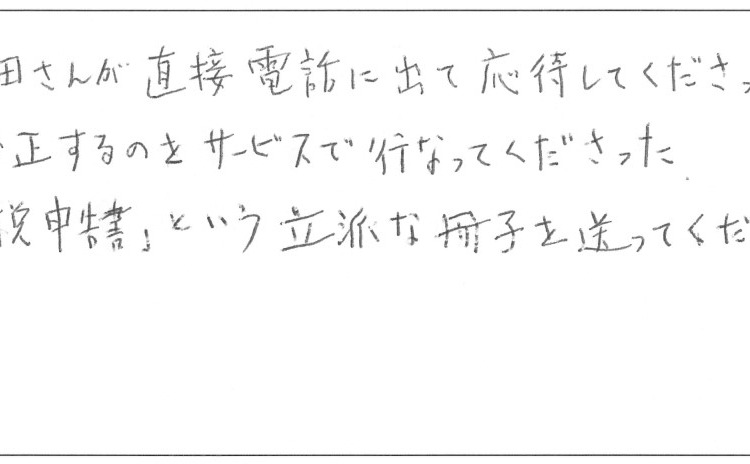 田さんが直接電話に出て応待してくださっ
正するのをサービスで行なってくださった
税申告書」という立派な冊子を送ってくだ